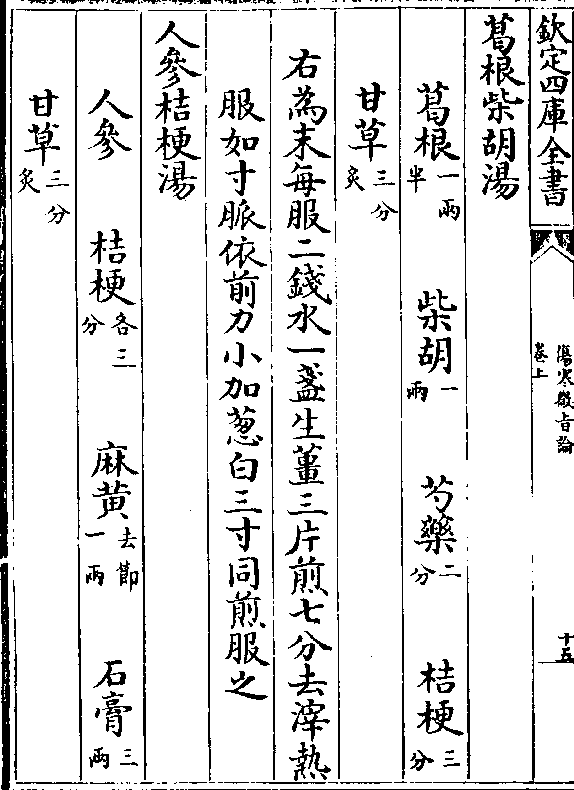 欽定四庫全書
傷寒㣲旨論
卷上
十五
葛根柴胡湯
葛根一兩半 柴胡一兩 芍藥二分 桔梗三分
甘草三分炙
右為末每服二錢水一盞生薑三片煎七分去滓熱
服如寸脈依前力小加葱白三寸同煎服之
人參桔梗湯
人參 桔梗各三分 麻黄去節一兩 石膏三兩
甘草三分炙